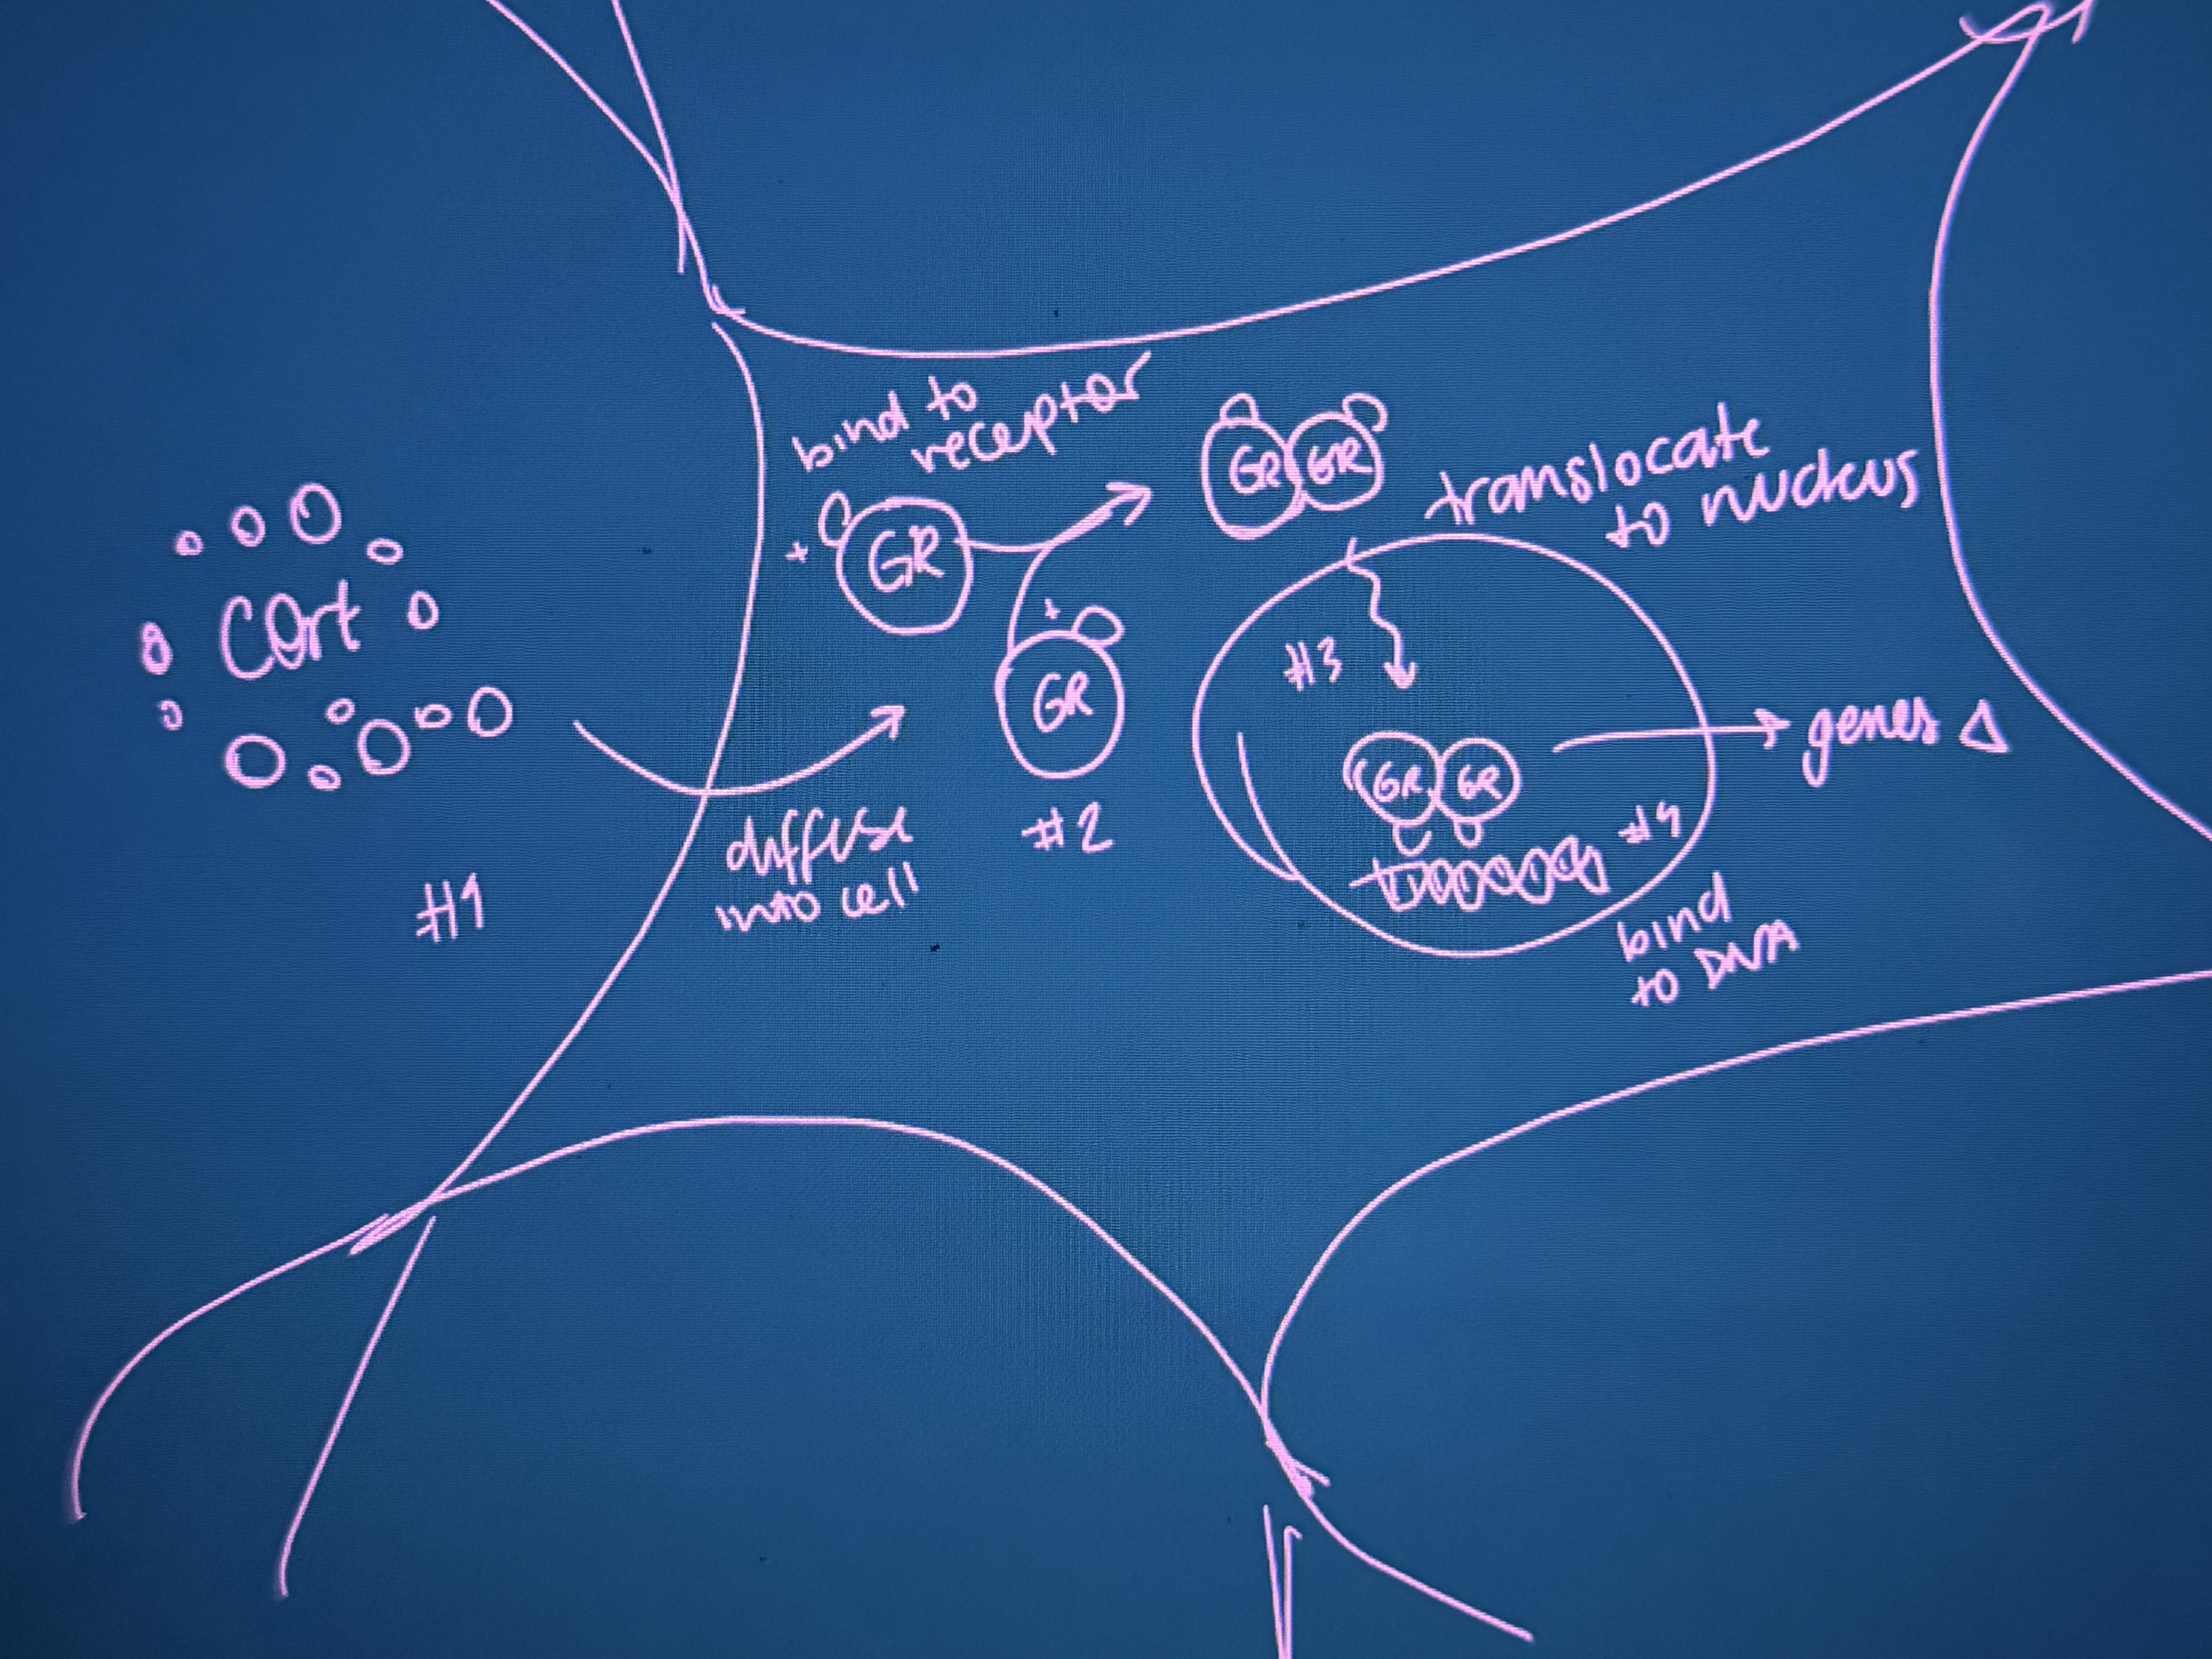 Cort
#1
diffuse
into cell
bind to
receptor
+
GR
+
GR
#2
GR GR
translocate
to nucleus
#3
GR GR
#4
bind
to DNA
genes Δ